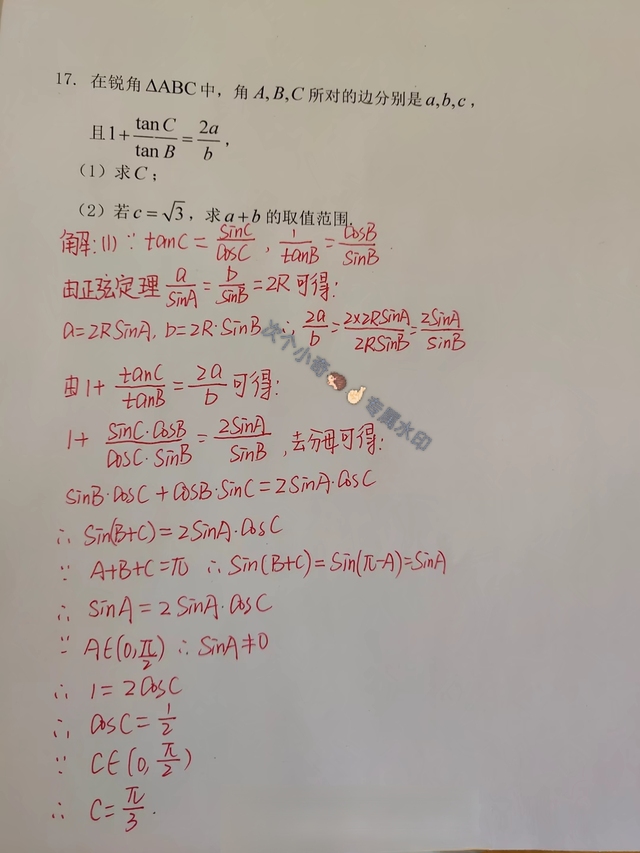 17. 在锐角 ΔABC 中，角 A,B,C 所对的边分别是 a,b,c，
且 1+ tanC/tanB = 2a/b，
（1）求 C；
（2）若 c=√3，求 a+b 的取值范围.
解:(1) ∵ tanC = sinC/cosC , 1/tanB = cosB/sinB
由正弦定理 a/sinA = b/sinB = 2R 可得:
a=2RsinA, b=2R·sinB ∴ 2a/b = 2×2RsinA/2RsinB = 2sinA/sinB
次个小奇 专属水印
由 1+ tanC/tanB = 2a/b 可得:
1+ sinC·cosB/cosC·sinB = 2sinA/sinB , 去分母可得:
sinB·cosC + cosB·sinC = 2sinA·cosC
∴ sin(B+C) = 2sinA·cosC
∵ A+B+C=π ∴ sin(B+C)=sin(π-A)=sinA
∴ sinA = 2sinA·cosC
∵ A∈(0,π/2) ∴ sinA≠0
∴ 1=2cosC
∴ cosC=1/2
∵ C∈(0,π/2)
∴ C=π/3.